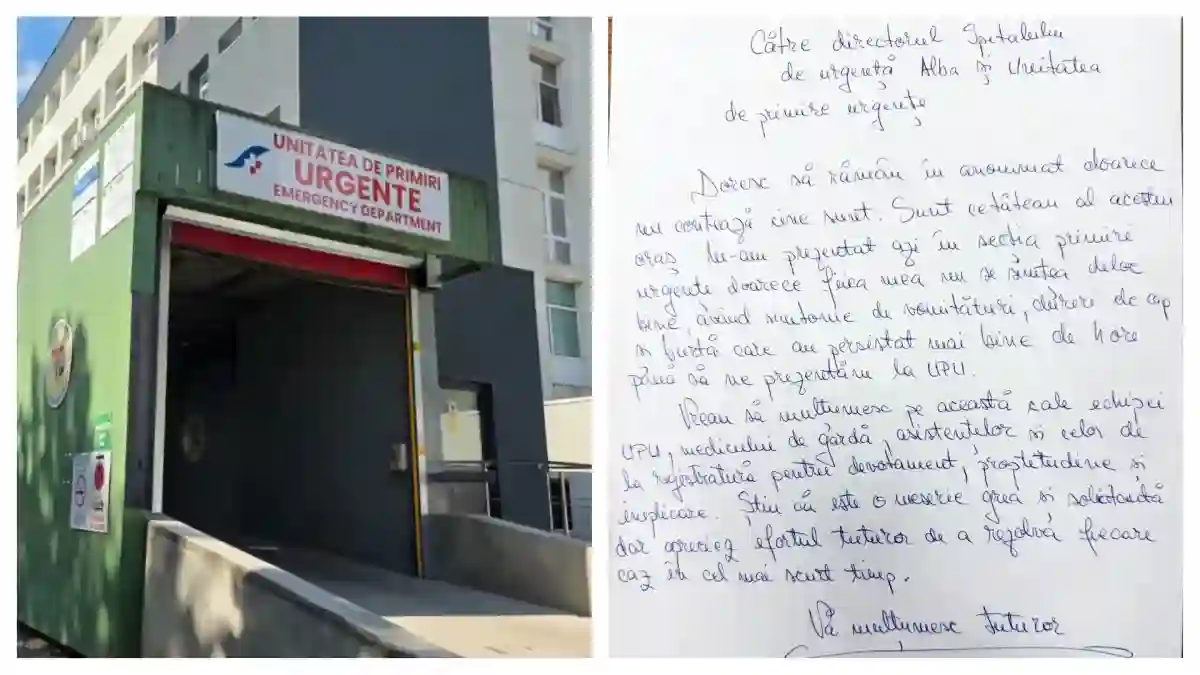 UNITATEA DE PRIMIRI
URGENTE
EMERGENCY DEPARTMENT
Către directorul Spitalului
de urgență Alba și Unitatea
de primire urgențe
Doresc să rămân în anonimat doarece
nu contează cine sunt. Sunt cetătean al acestui
oraș. M-am prezentat azi în sectia primiri
urgente doarece fiica mea nu se simtea deloc
bine, având simtome de vomitături, dureri de cap
si burtă care au persistat mai bine de 4 ore
până să ne prezentăm la UPU.
Vreau să multumesc pe această cale echipei
UPU, medicului de gardă, asistentelor si celor de
la registratură pentru devotament, proptetudine și
implicare. Știu că este o meserie grea si solicitantă
dar apreciez efortul tuturor de a rezolva fiecare
caz în cel mai scurt timp.
Vă multumesc tuturor